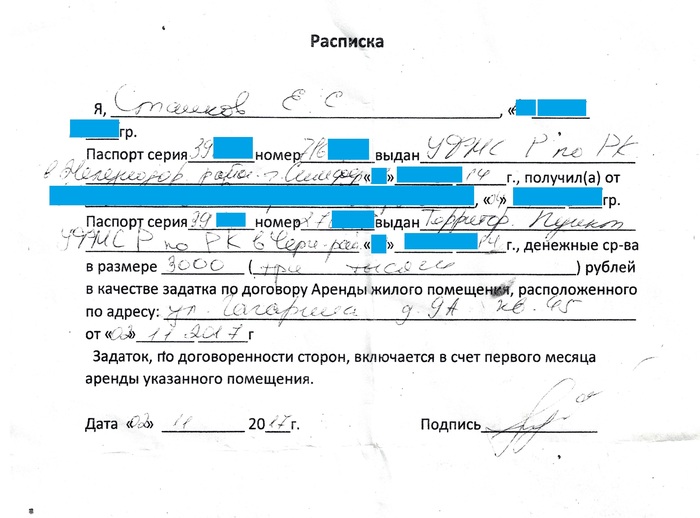 Расписка
Я, Станков Е. С , «
гр.
Паспорт серия 39 номер 716 выдан УФМС Р по РК
в Железнодор. районе г. « » 14 г., получил(а) от
, «04» гр.
Паспорт серия 39 номер 278 выдан Территор. Пункт
УФМС Р по РК в « » 14 г., денежные ср-ва
в размере 3000 ( три тысячи ) рублей
в качестве задатка по договору Аренды жилого помещения, расположенного
по адресу: ул. Гагарина д. 9А кв. 45
от «02» 11 2017 г
Задаток, по договоренности сторон, включается в счет первого месяца
аренды указанного помещения.
Дата «02» 11 2017г. Подпись